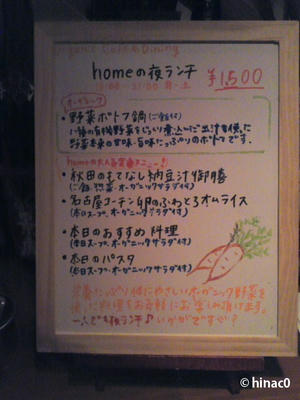 Organic Cafe & Dining
homeの夜ランチ ¥1,500
18:00~21:00 月-土
オーガニック
・野菜ポトフ鍋(ご飯付)
野菜本来の甘味・旨味たっぷりのポトフです。
homeの大人気定番メニュー!
・秋田のもてなし納豆汁御膳
(ご飯・惣菜・オーガニックサラダ付)
・名古屋コーチン卵のふわとろオムライス
(本日スープ・オーガニックサラダ付)
・本日のおすすめ料理
(本日スープ・オーガニックサラダ付)
・本日のパスタ
(本日スープ・オーガニックサラダ付)
栄養たっぷり体にやさしいオーガニック野菜を
使った料理をお気軽にお楽しみ頂けます。
一人でも夜ランチ♪いかがですか?
© hinac0